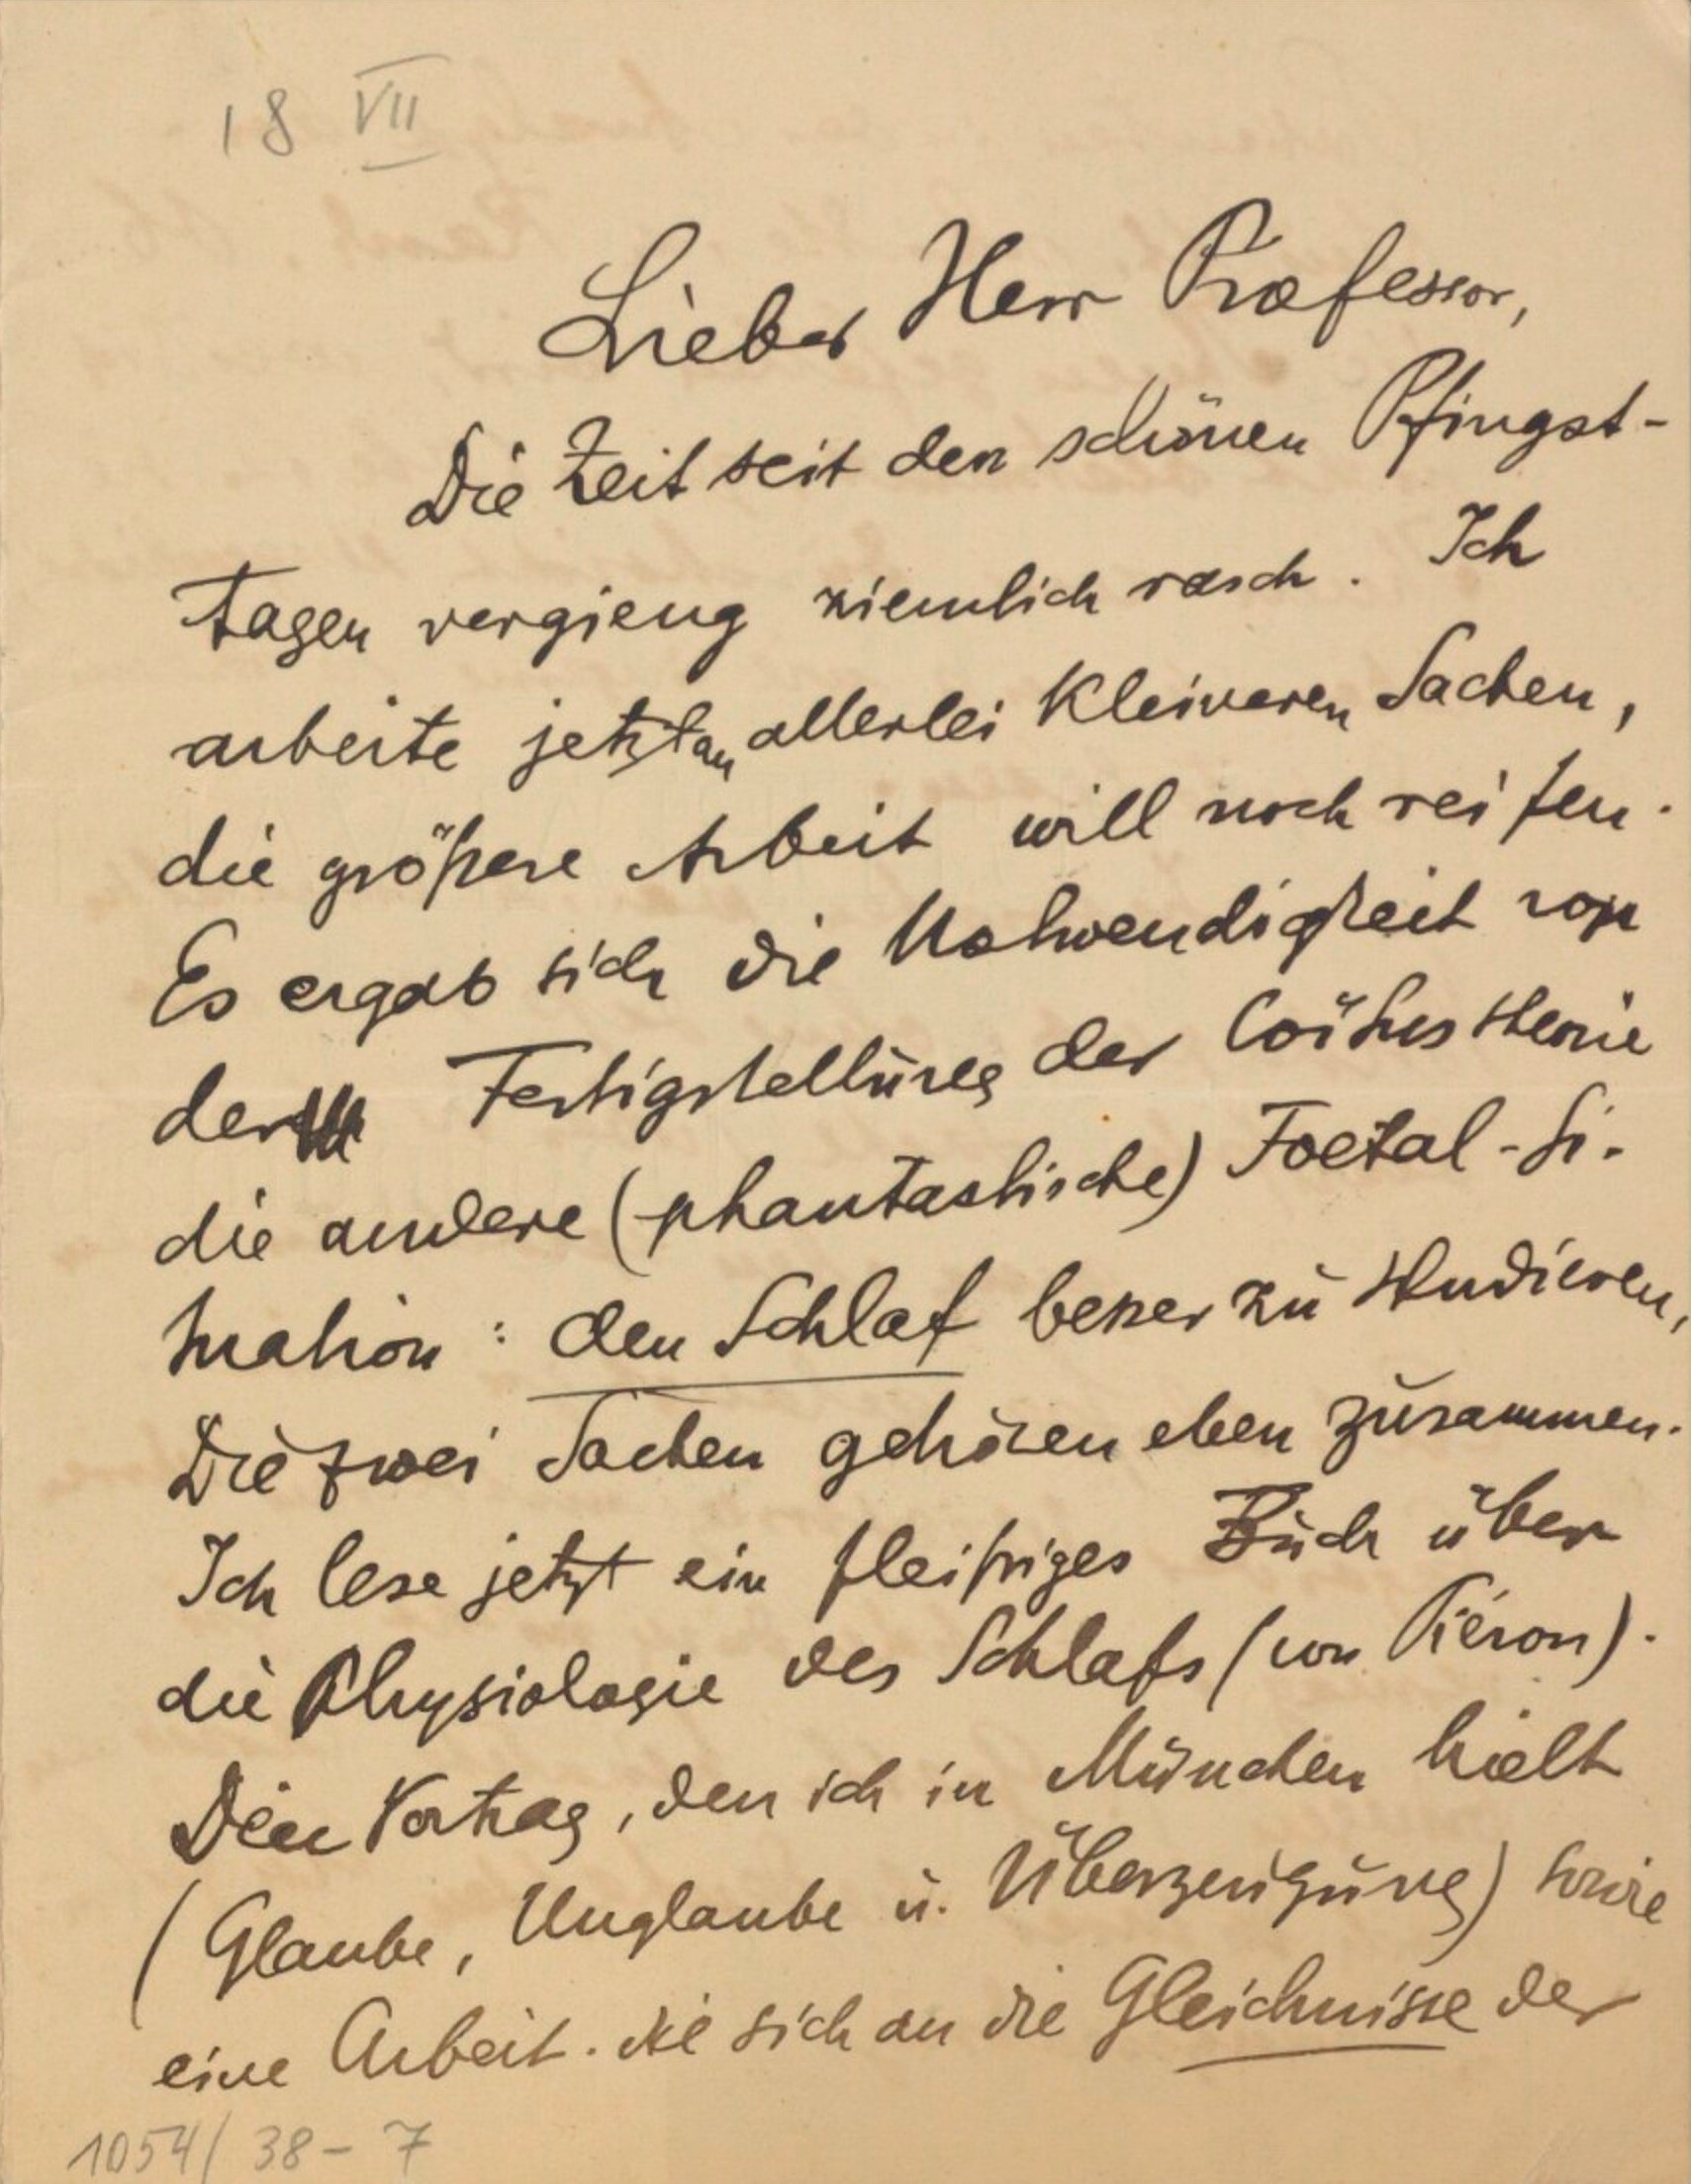 18 VII
Lieber Herr Professor,
Die Zeit seit den schönen Pfingst-
tagen vergieng ziemlich rasch. Ich
arbeite jetzt an allerlei kleineren Sachen,
die größere Arbeit will noch reifen.
Es ergab sich die Notwendigkeit vor
der Fertigstellung der Coïtustheorie
die andere (phantastische) Foetal-Si-
tuation: den Schlaf besser zu studieren,
Die zwei Sachen gehören eben zusammen.
Ich lese jetzt ein fleißiges Buch über
die Physiologie des Schlafs (von Piéron).
Den Vortrag, den ich in München hielt
(Glaube, Unglaube u. Überzeugung) sowie
eine Arbeit. die sich an die Gleichnisse der
1054/38-7